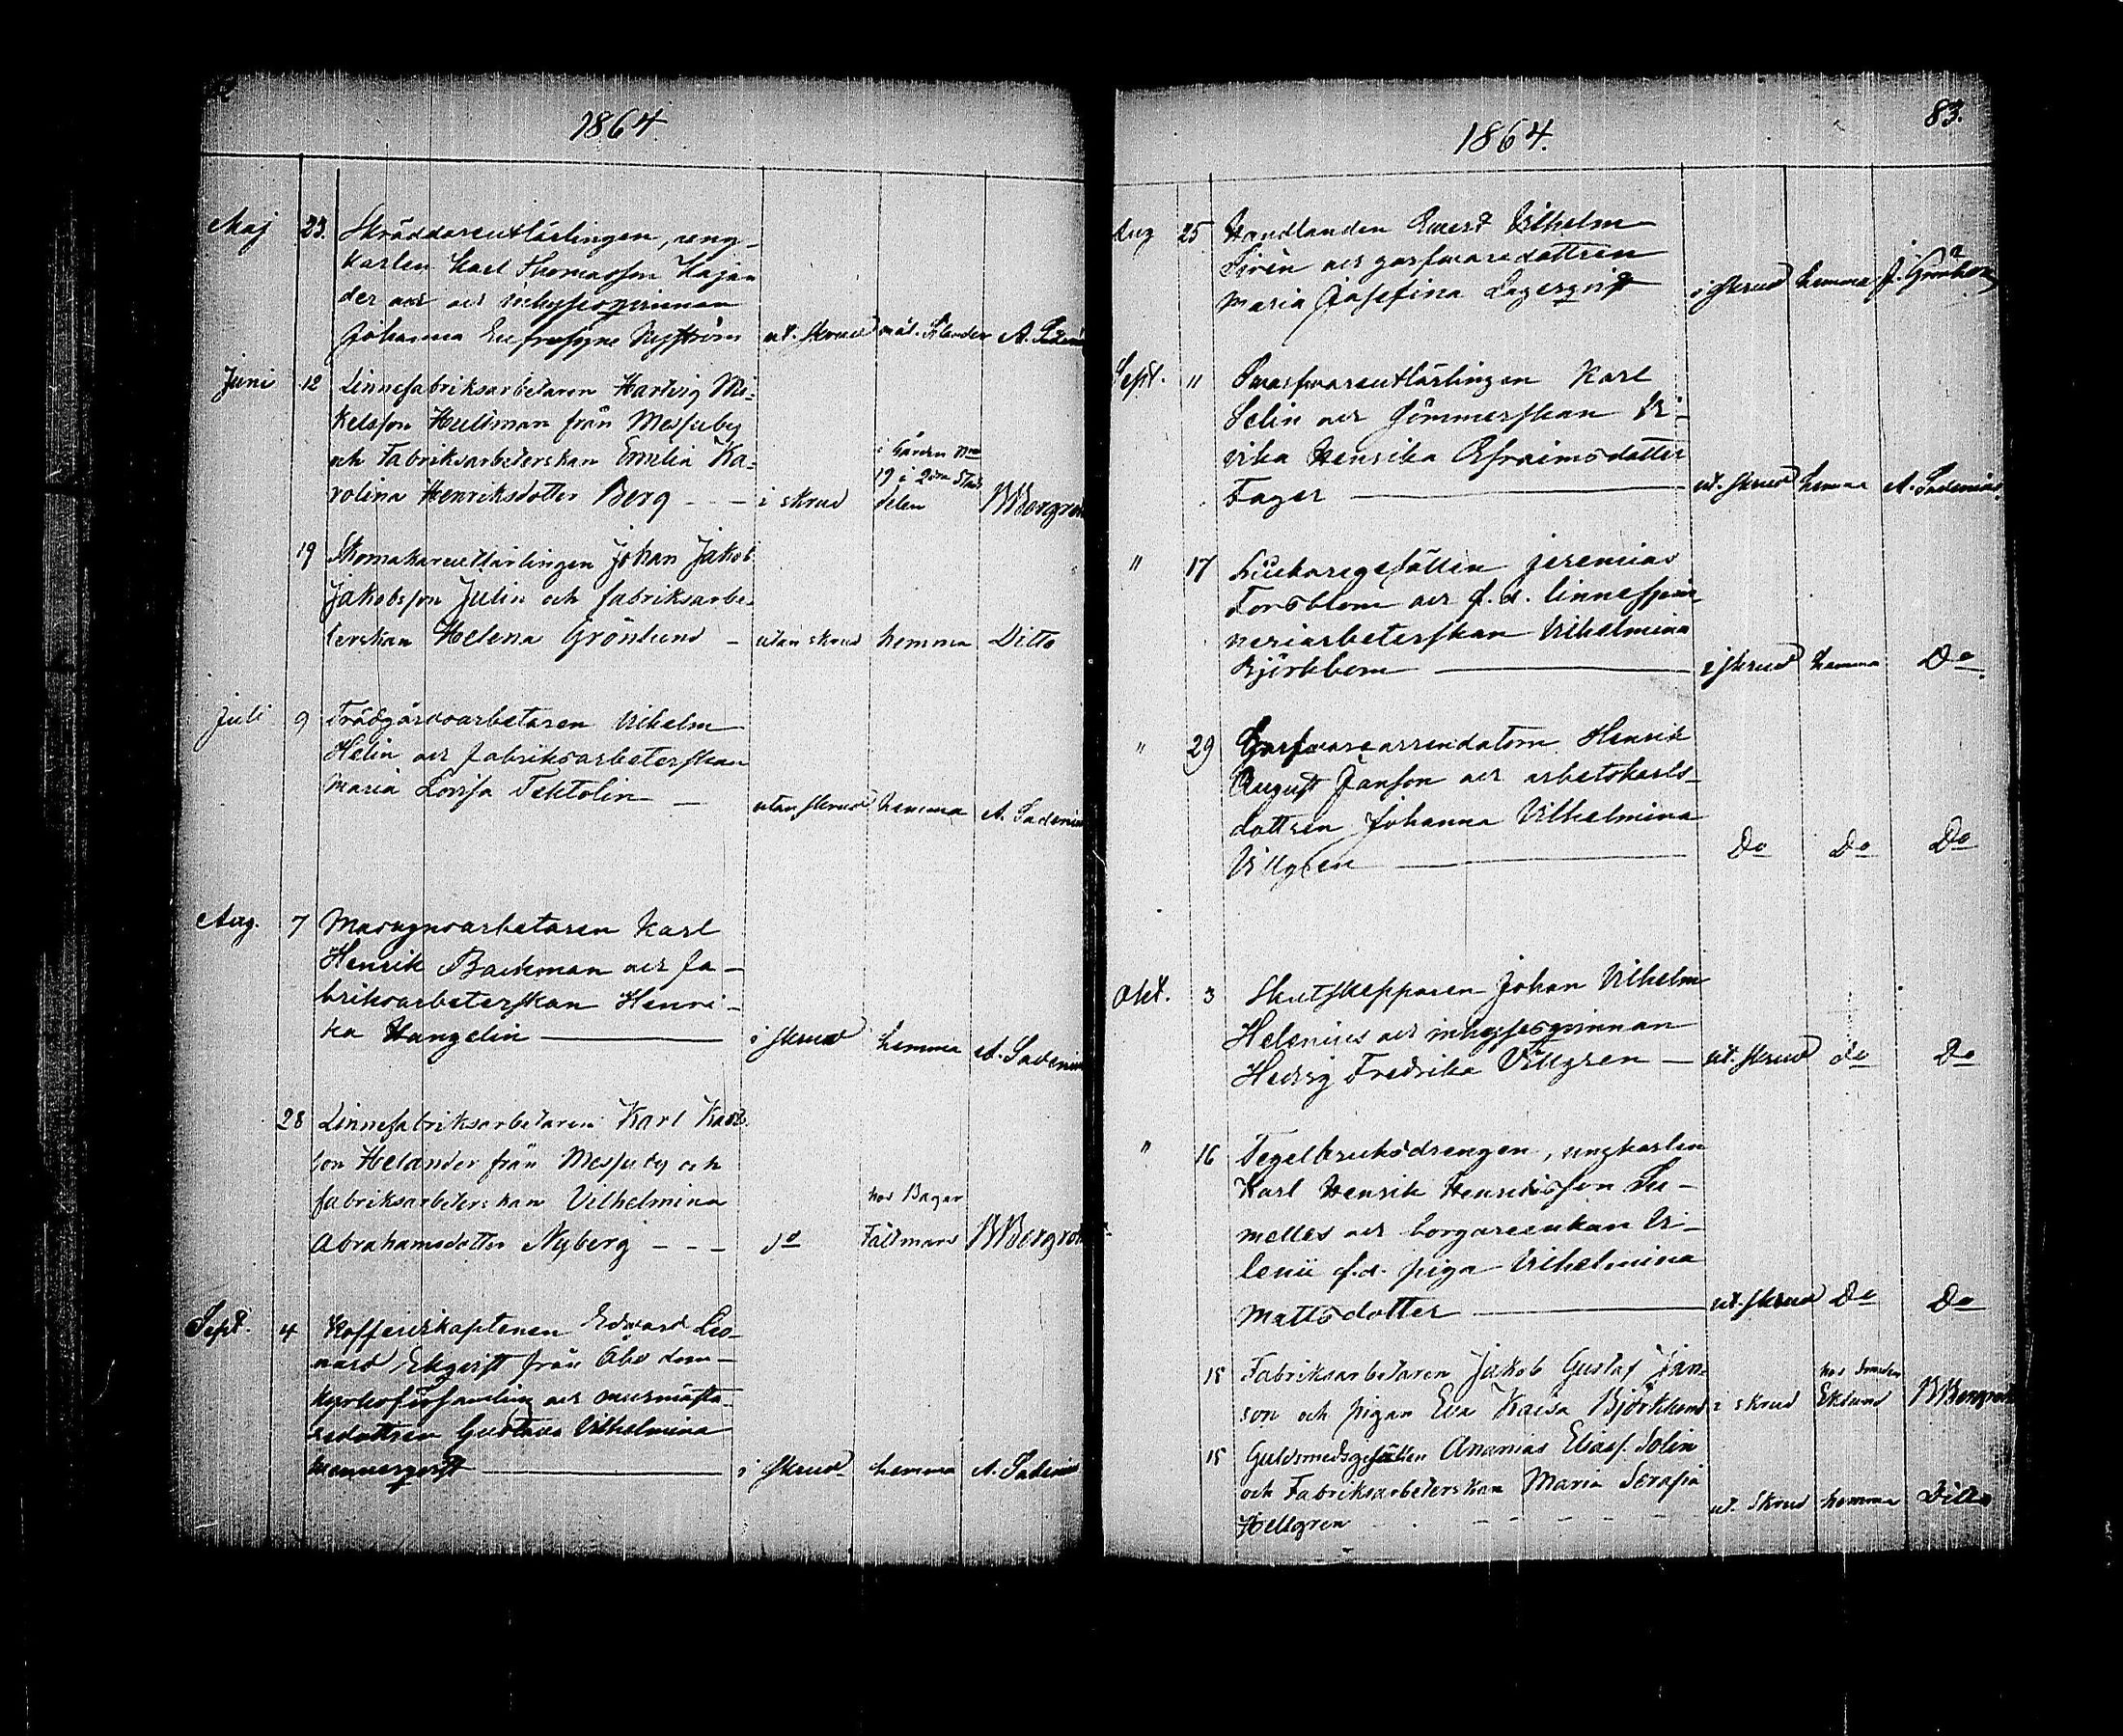 1864
Maj 23. Skräddareutlärlingen, ung-
karlen Karl Thomasson Kajan
der och inhyssesqvinnan
Johanna Eufrosyne Nyström ut. skrud mål. A. Sadenius
Juni 12 Linnefabriksarbetaren Hartvig Mi-
kelsson Hultman från Messuby
och Fabriksarbeterskan Emelia Ka-
rolina Henriksdotter Berg - - - i skrud i Gården Nro 19 i 2dra Stads delen BBergroth
19 Skomakareutlärlingen Johan Jakob
Jakobsson Julin och fabriksarbe-
terskan Helena Grönlund - utan skrud hemma Ditto
Juli 9 Trädgårdsarbetaren Vilhelm
Helin och fabriksarbeterskan
Maria Lovisa Tektolin - utan skrud hemma A. Sadenius
Aug. 7 Masugnsarbetaren Karl
Henrik Backman och fa-
briksarbeterskan Henri-
ka Hangelin — i skrud hemma A. Sadenius
28 Linnefabriksarbetaren Karl Karls
son Helander från Messuby och
fabriksarbeterskan Vilhelmina
Abrahamsdotter Nyberg - - - do hos Bagar Fältmans BBergroth
Sept. 4 Kofferdikaptenen Edvard Leo-
nard Ekqvist från Åbo dom-
kyrkoförsamling och murmästa-
redottren Gustava Vilhelmina
Mannerqvist — i skrud hemma A. Sadenius
83.
1864.
Aug 25 Handlanden Evert Vilhelm
Sirén och garfvaredottren
Maria Josefina Lagerqvist i skrud hemma J. Grönberg
Sept. 11 Svarfvareutlärlingen Karl
Selin och sömmerskan Ul-
rika Henrika Efraimsdotter
Fager — ut. skrud hemma A. Sadenius
" 17 Forsblom Jeremias
och f.d. linnespin-
neriarbeterskan Vilhelmina
Björkbom — i skrud hemma Do
" 29 Garfvarearrendatorn Henrik
August Janson och arbetskarls-
dottren Johanna Vilhelmina
Villgren — Do Do Do
Okt. 3 Skutskepparen Johan Vilhelm
Helenius och inhyssesqvinnan
Hedvig Fredrika Villgren — ut. skrud do Do
" 16 Tegelbruksdrengen, ungkarlen
Karl Henrik Henriksson Lu-
melles och borgareenkan Vi-
lenii f.d. piga Vilhelmina
Mattsdotter — ut. skrud Do Do
15 Fabriksarbetaren Jakob Gustaf Jan-
son och pigan Eva Kaisa Björklund i skrud hos Smeden Eklund BBergroth
15 Guldsmedsgesällen Ananias Eliass. Solin
och Fabriksarbeterskan Maria Serafia
Hellgren - - - - - - ut. Skrud hemma Ditto